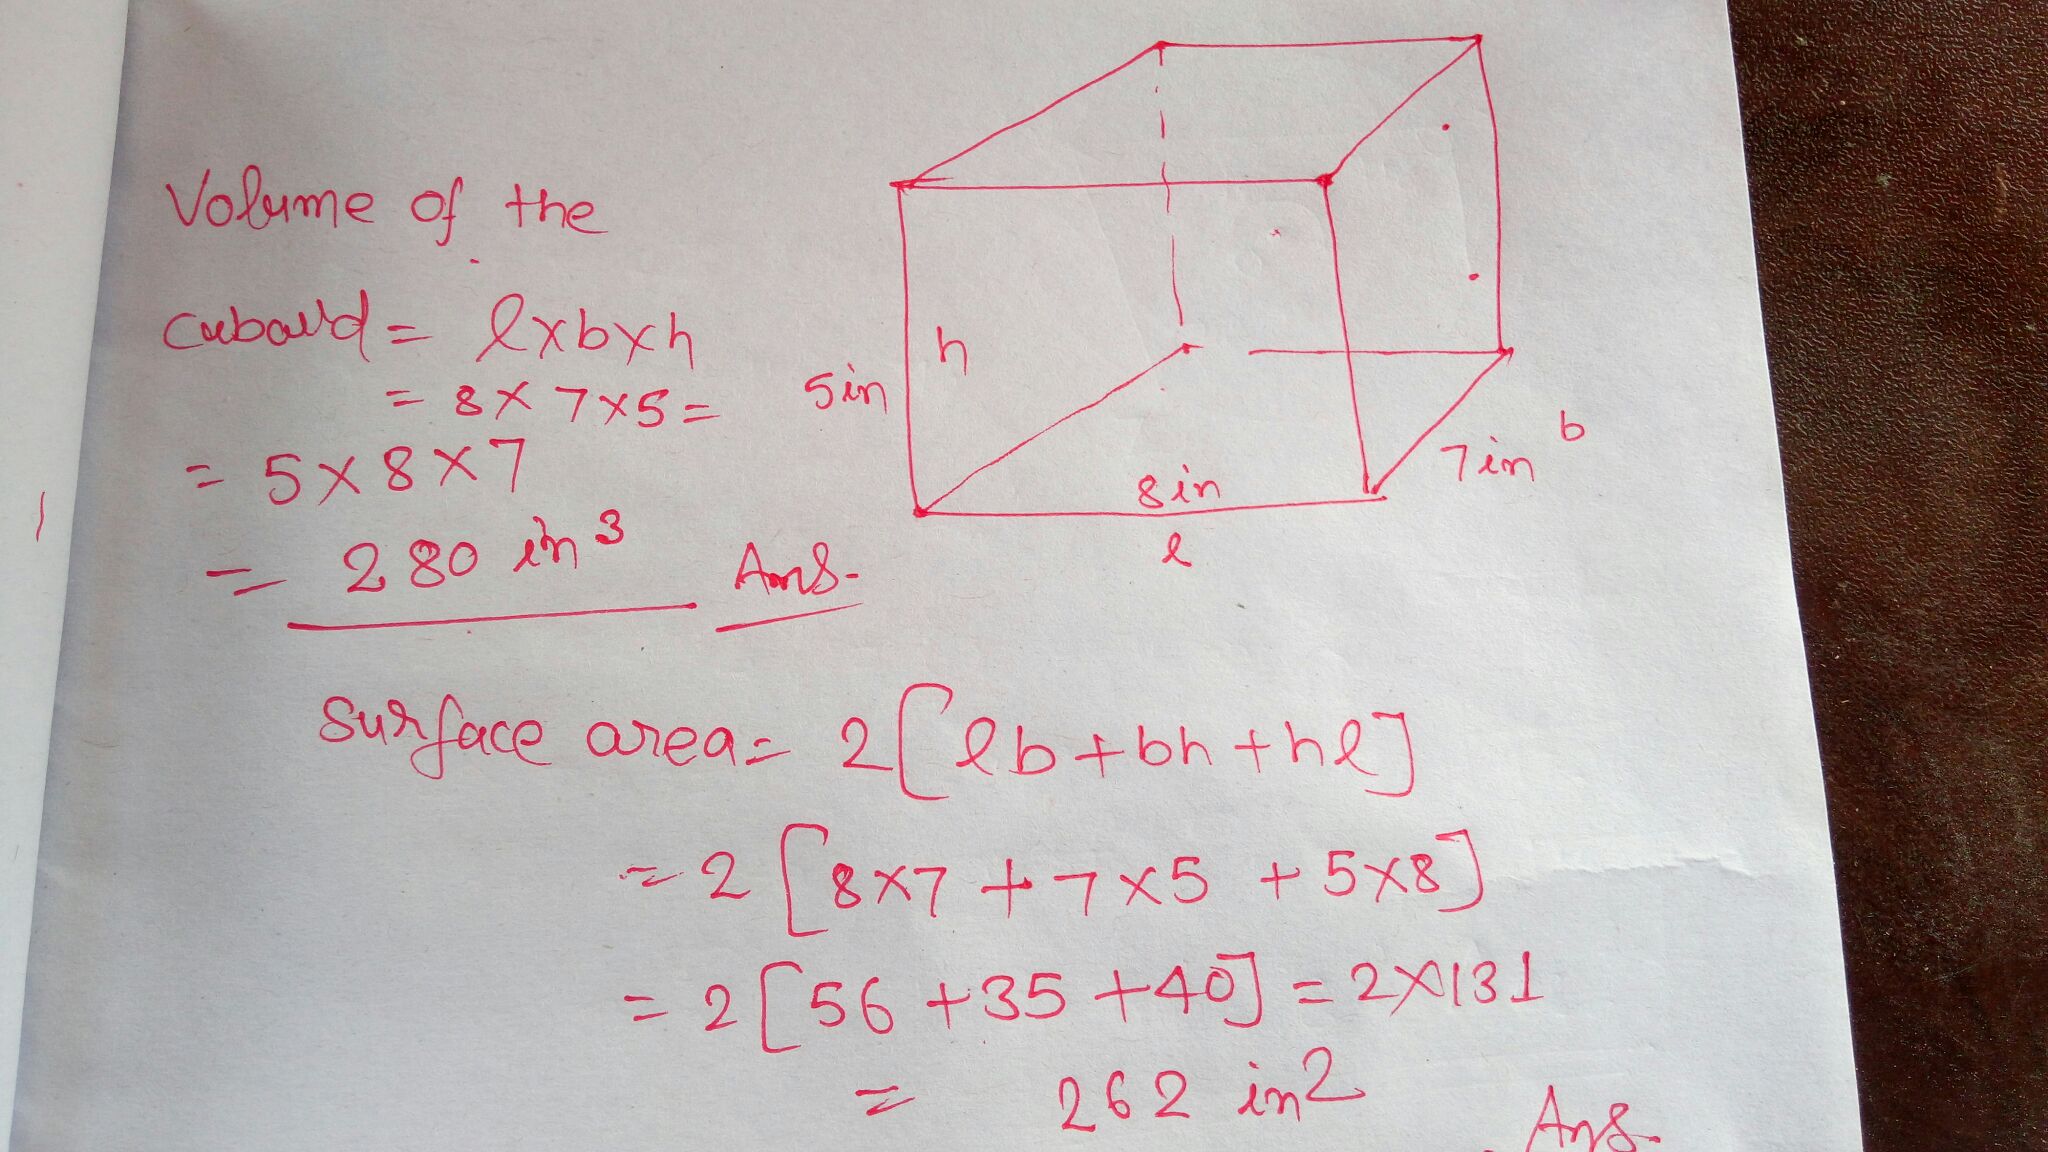 Volume of the
cuboid = l×b×h
= 8×7×5=
= 5×8×7
= 280 in³ Ans.
h
5in
8in
l
7in b
Surface area= 2[lb+bh+hl]
=2[8×7+7×5+5×8]
=2[56+35+40]=2×131
= 262 in²
Ans.